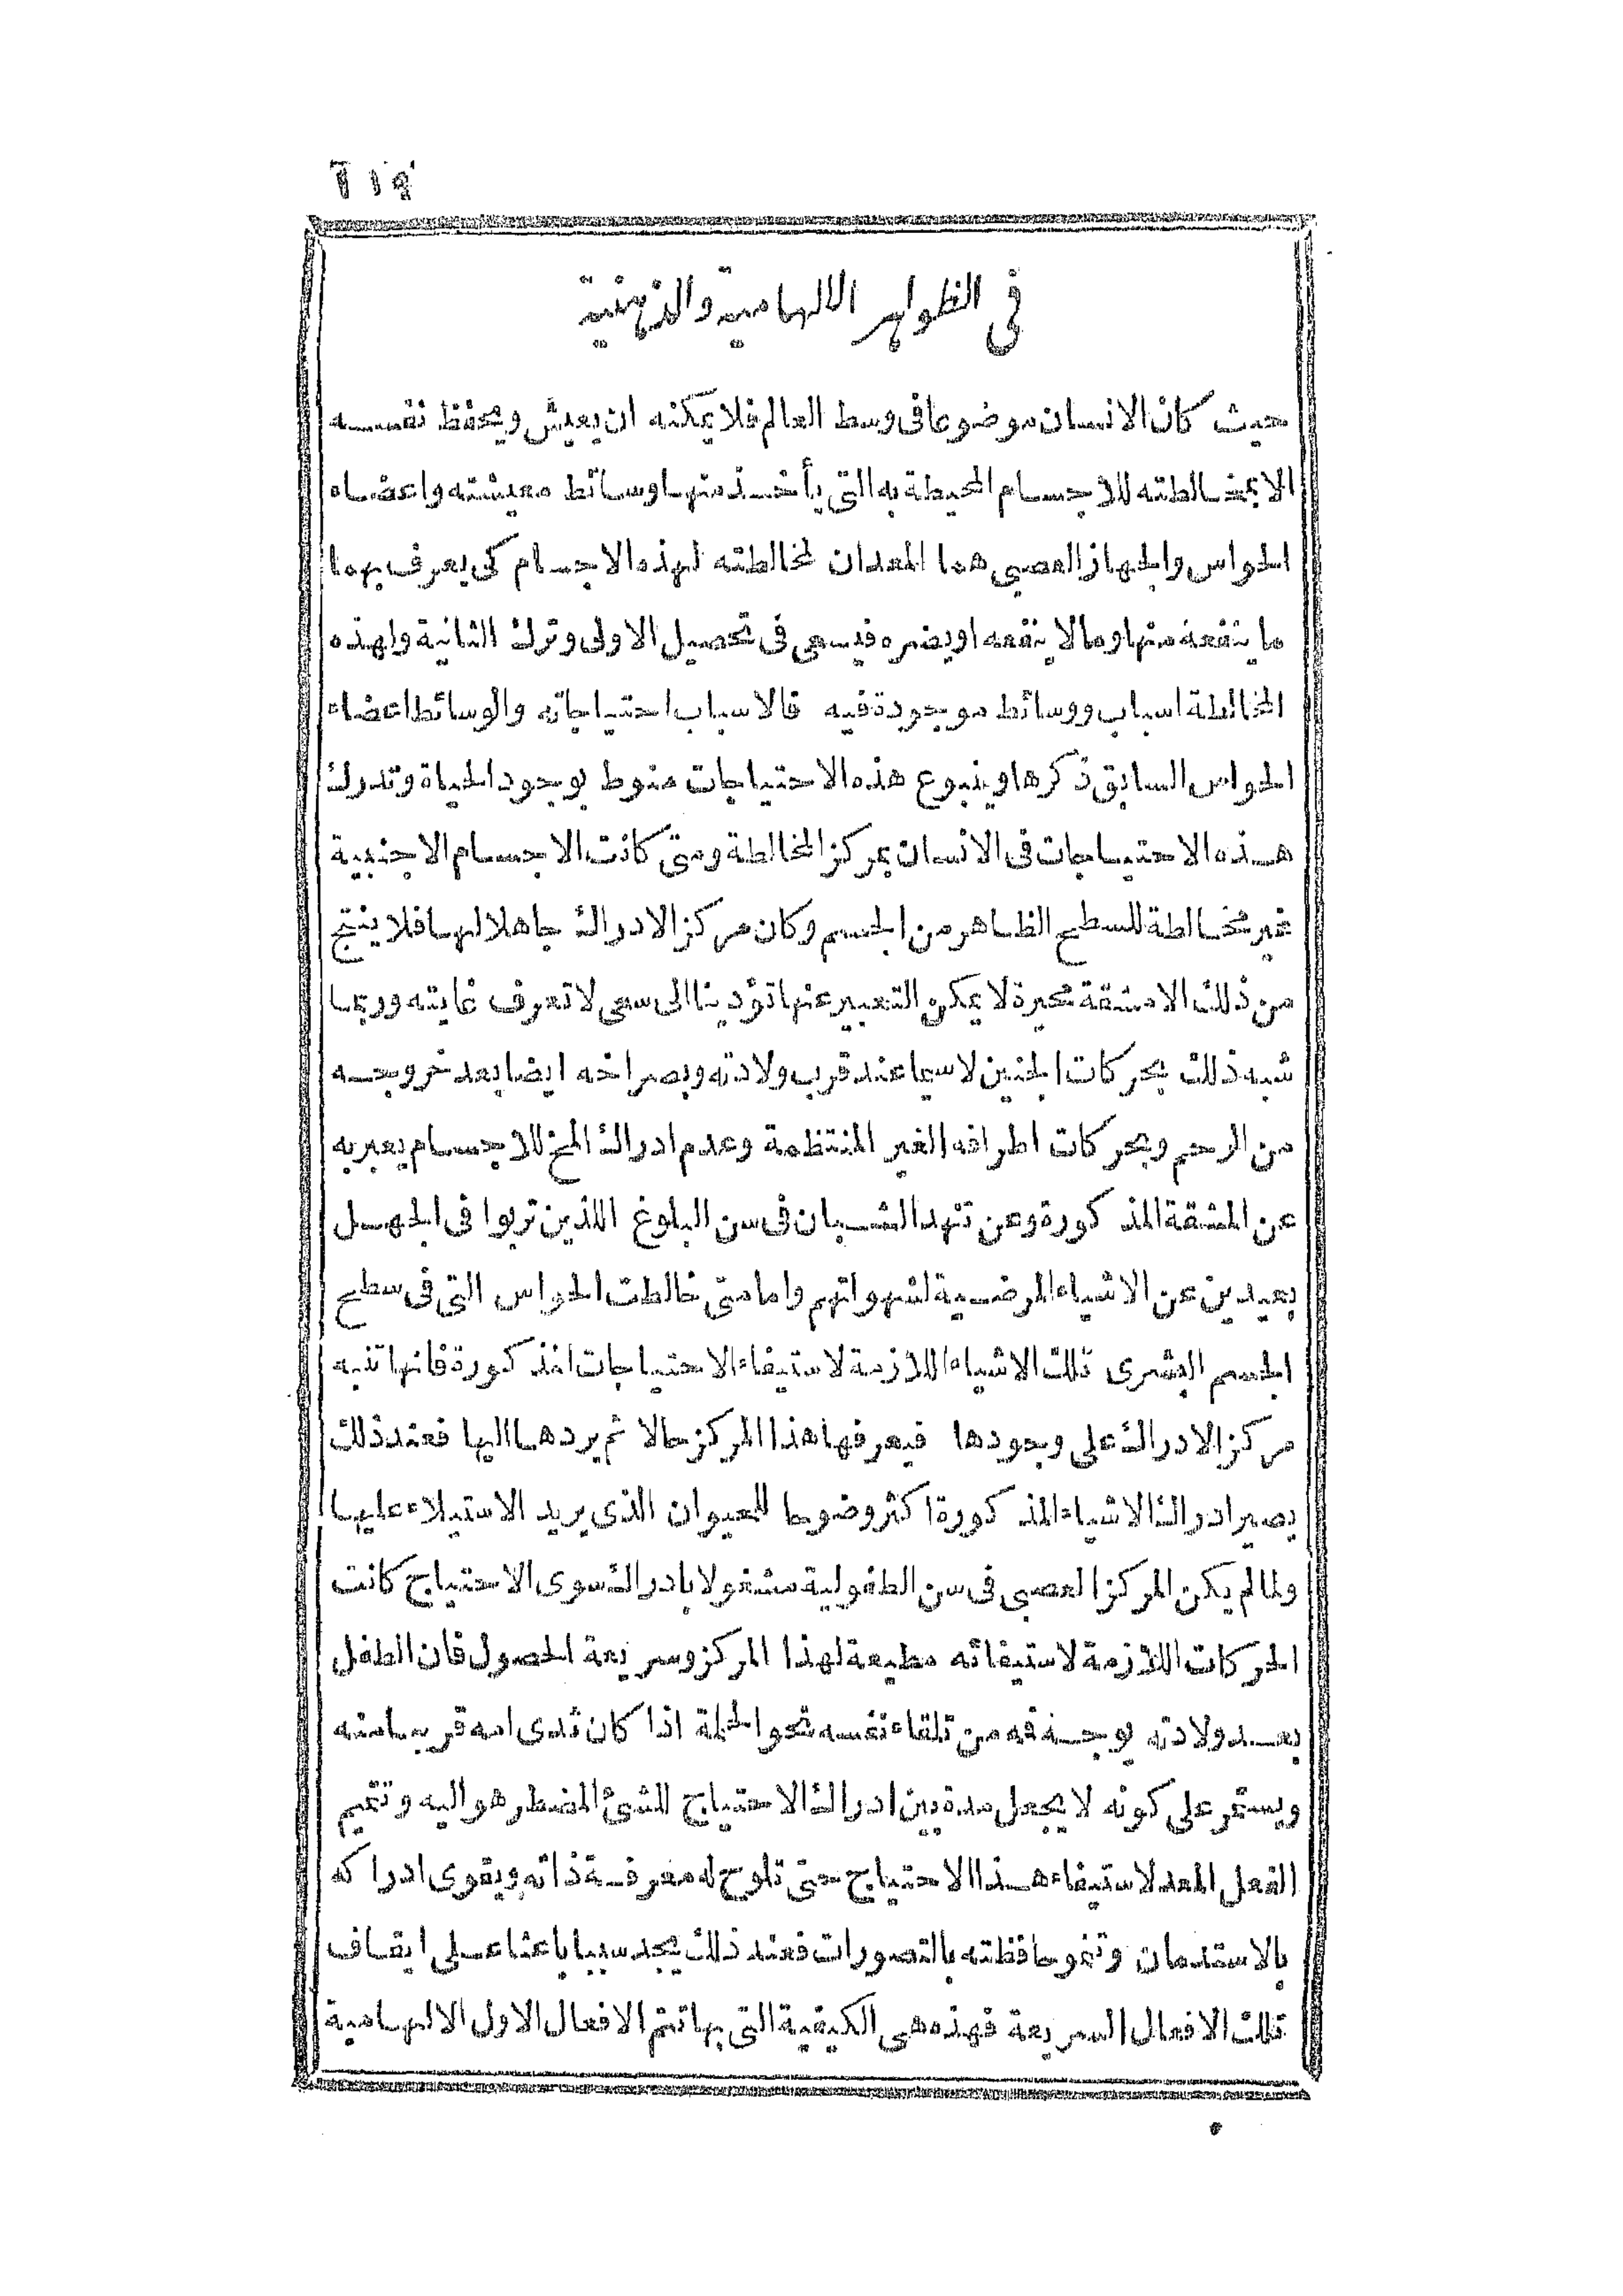 ٢١٩
فى الظواهر الالهامية والذهنية
حيث كان الانسان موضوعا فى وسط العالم فلا يمكنه ان يعيش ويحفظ نفسه
الا بمخالطته للاجسام المحيطة به التى يأخذ منها وسائط معيشته واعضاه
الحواس والجهاز العصبى هما المعدان لمخالطته لهذه الاجسام كى يعرف بهما
ما ينفعه منها وما لا ينفعه او يضره فيسعى فى تحصيل الاولى وترك الثانية ولهذه
المخالطة اسباب ووسائط موجودة فيه فالاسباب احتياجاته والوسائط اعضاء
الحواس السابق ذكرها وينبوع هذه الاحتياجات منوط بوجود الحياة وتدرك
هذه الاحتياجات فى الانسان بمركز المخالطة ومتى كانت الاجسام الاجنبية
غير مخالطة للسطح الظاهر من الجسم وكان مركز الادراك جاهلا لها فلا ينتج
من ذلك الا مشقة محيرة لا يمكن التعبير عنها تؤدينا الى سعى لا تعرف غايته وربما
شبه ذلك بحركات الجنين لاسيما عند قرب ولادته وبصراخه ايضا بعد خروجه
من الرحم وبحركات اطرافه الغير المنتظمة وعدم ادراك المخ للاجسام يعبر به
عن المشقة المذكورة وعن تنهد الشبان فى سن البلوغ اللذين تربوا فى الجهل
بعيدين عن الاشياء المرضية لشهواتهم واما متى خالطت الحواس التى فى سطح
الجسم البشرى تلك الاشياء اللازمة لاستيفاء الاحتياجات المذكورة فانها تنبه
مركز الادراك على وجودها فيعرفها هذا المركز حالا ثم يردها اليها فعند ذلك
يصير ادراك الاشياء المذكورة اكثر وضوحا للحيوان الذى يريد الاستيلاء عليها
ولما لم يكن المركز العصبى فى سن الطفولية مشغولا بادراك سوى الاحتياج كانت
الحركات اللازمة لاستيفائه مطيعة لهذا المركز وسريعة الحصول فان الطفل
بعد ولادته يوجه فمه من تلقاء نفسه نحو الحلمة اذا كان ثدى امه قريبا منه
ويستمر على كونه لا يجعل مدة بين ادراك الاحتياج للشئ المضطر هو اليه وتتميم
الفعل المعد لاستيفاء هذا الاحتياج حتى تلوح له معرفة ذاته ويقوى ادراكه
بالاستدمان وتنمو حافظته بالتصورات فعند ذلك يجد سببا باعثا على ايقاف
تلك الافعال السريعة فهذه هى الكيفية التى بها تتم الافعال الاول الالهامية